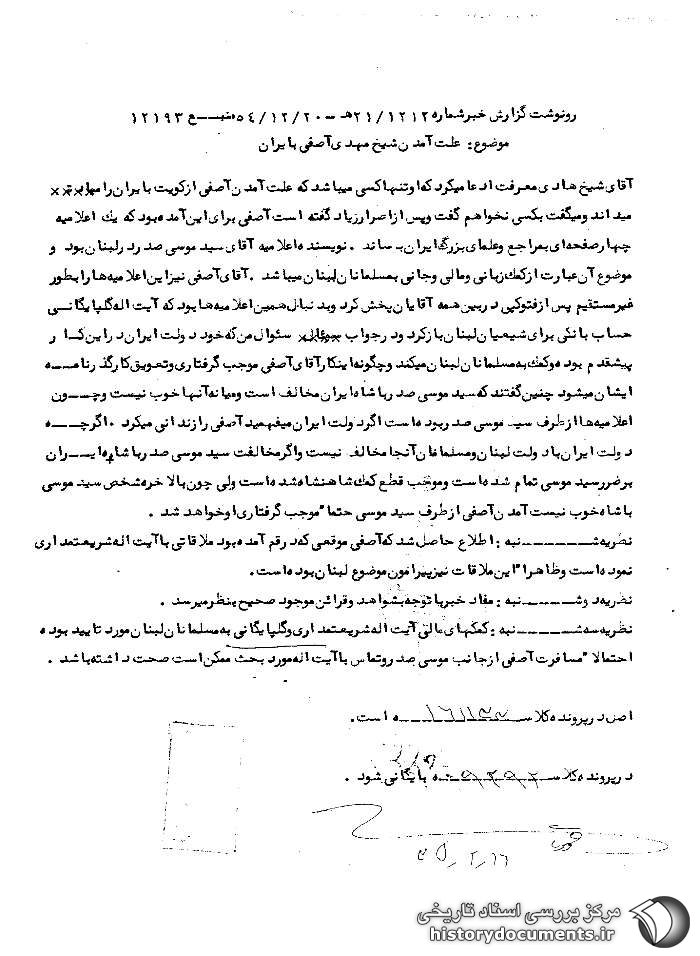 رونوشت گزارش خبر شماره ۲۱/۱۲۱۲هـ - ۵۴/۱۲/۲۰ منبع ۱۲۱۹۳
موضوع: علت آمدن شیخ مهدی آصفی بایران
آقای شیخ هادی معرفت ادعا میکرد که او تنها کسی میباشد که علت آمدن آصفی از کویت بایران را
میداند و میگفت بکسی نخواهم گفت و پس از اصرار زیاد گفته است آصفی برای این آمده بود که یک اعلامیه
چهار صفحه‌ای بمراجع و علمای بزرگ ایران برساند. نویسنده اعلامیه آقای سید موسی صدر در لبنان بود و
موضوع آن عبارت از کمک زبانی و مالی و جانی بمسلمانان لبنان میباشد. آقای آصفی نیز این اعلامیه‌ها را بطور
غیر مستقیم پس از فتوکپی در بین همه آقایان پخش کرد و بدنبال همین اعلامیه‌ها بود که آیت اله گلپایگانی
حساب بانکی برای شیعیان لبنان باز کرد و در جواب سئوال من که خود دولت ایران در این کار
پیشقدم بوده و کمک به مسلمانان لبنان میکند و چگونه اینکار آقای آصفی موجب گرفتاری و تعویق کار گذرنامه
ایشان میشود چنین گفتند که سید موسی صدر با شاه ایران مخالف است و میانه آنها خوب نیست و چون
اعلامیه‌ها از طرف سید موسی صدر بوده است اگر دولت ایران میفهمید آصفی را زندانی میکرد. اگر چه
دولت ایران با دولت لبنان و مسلمانان آنجا مخالف نیست و اگر مخالفت سید موسی صدر با شاه ایران
بر ضرر سید موسی تمام شده است و موجب قطع کمک شاهنشاه شده است ولی چون بالاخره شخص سید موسی
با شاه خوب نیست آمدن آصفی از طرف سید موسی حتما" موجب گرفتاری او خواهد شد.
نظریه شنبه: اطلاع حاصل شد که آصفی موقعی که در قم آمده بود ملاقاتی با آیت اله شریعتمداری
نموده است و ظاهرا" این ملاقات نیز پیرامون موضوع لبنان بوده است.
نظریه دوشنبه: مفاد خبر با توجه بشواهد و قرائن موجود صحیح بنظر میرسد.
نظریه سه‌شنبه: کمکهای مالی آیت اله شریعتمداری و گلپایگانی به مسلمانان لبنان مورد تایید بوده
احتمالا" مسافرت آصفی از جانب موسی صدر و تماس با آیت اله مورد بحث ممکن است صحت داشته باشد.
اصل در پرونده کلاسه است.
در پرونده کلاسه بایگانی شود.
مرکز بررسی اسناد تاریخی
historydocuments.ir